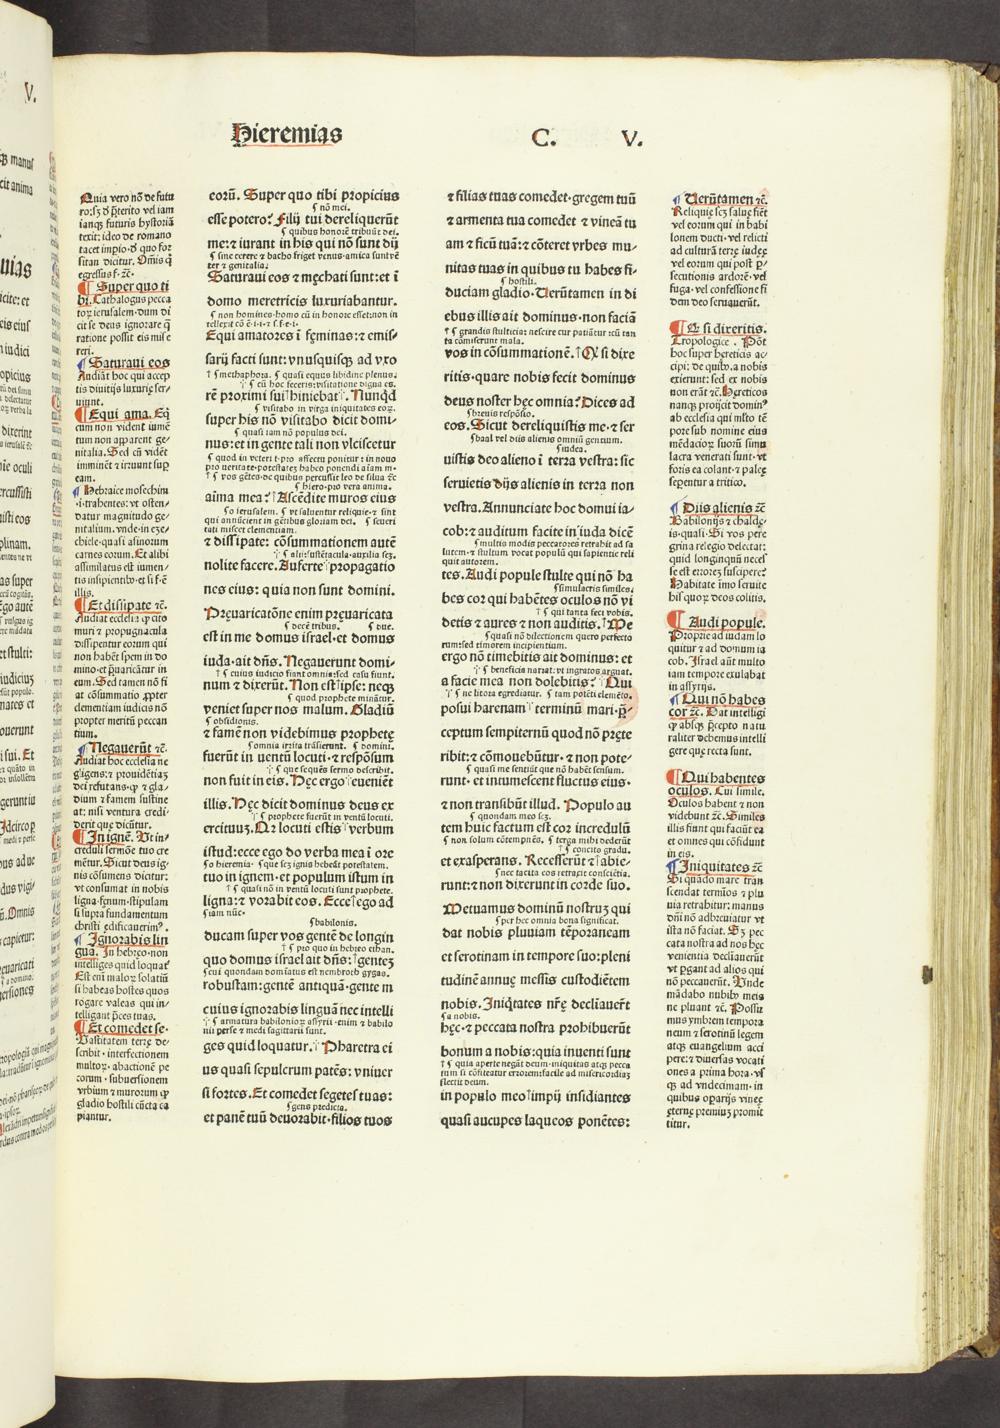 Hieremias
C. V.
Quia vero nō de futu
ro: sʒ d̄ p̄terito vel iam
ianqʒ futuris hystoriā
texit: ideo de romano
tacet impio. d̄ quo for
sitan dicitur. Om̄is q̄
egressus f. ⁊c.
Super quo ti
bi. Cathalogus pecca
toꝝ ierusalem. dum di
cit se deus ignorare q̄
ratione possit eis mise
reri.
Saturaui eos
Audiāt hoc qui accep
tis diuitijs luxurię ser-
uiunt.
Equi ama. Eq̄
cum non vident iumē
tum non apparent ge-
nitalia. Sed cū vidēt
imminēt ⁊ irruunt suꝑ
eam.
Hebraice mosechim
.i. trahentes: vt osten-
datur magnitudo ge-
nitalium. vnde in eze-
chiele. quasi asinorum
carnes eorum. Et alibi
assimilatus est iumen-
tis insipientibꝰ. et si f. ē
illis.
Et dissipate ⁊c.
Audiat ecclesia ꝙ cito
muri ⁊ propugnacula
dissipentur eorum qui
non habēt spem in do
mino. et p̄uaricātur in
eum. Sed tamen nō fi
at cōsummatio ꝓpter
clementiam iudicis nō
propter meritū peccan
tium.
Negauerūt ⁊c.
Audiat hoc ecclesia ne
gligens: ⁊ prouidētiaʒ
dei refutans. ꝙ ⁊ gla-
dium ⁊ famem sustine
at: nisi ventura credi-
derit que dicūtur.
In ignē. Vt in-
creduli sermōe tuo cre
mētur. Sicut deus ig-
nis cōsumens dicitur:
vt consumat in nobis
ligna. fenum. stipulam
si supra fundamentum
christi ędificauerimꝰ.
Ignorabis lin
gua. In hebreo. non
intelliges quid loquat᷑
Est eni malorꝝ solatiū
si habeas hostes quos
rogare valeas qui in-
telligant p̄ces tuas.
Et comedet se.
Vastitatem terrę de-
scribit. interfectionem
multorꝝ. abactionē pe
corum. subuersionem
vrbium ⁊ murorum ꝙ
gladio hostili cūcta ca
piantur.
eorū. Super quo tibi propicius
nō mei.
esse potero? Filij tui dereliquerūt
quibus honorē tribuūt dei.
me: ⁊ iurant in his qui nō sunt dij
sine cerere ⁊ bacho friget venus. amica sunt vē
ter ⁊ genitalia.
Saturaui eos ⁊ męchati sunt: et ī
domo meretricis luxuriabantur.
non homines. homo cū in honore esset: non in
tellexit cō ē. i. i. ⁊ s. f. e. i.
Equi amatores ī fęminas: ⁊ emis-
sarij facti sunt: vnusquisqʒ ad vxo
methaphora. quasi equus libidine plenus.
cū hoc feceris: visitatione digna es.
rē proximi sui hiniebat. Nunqd
visitabo in virga iniquitates eoꝝ.
super his nō visitabo dicit domi-
quasi iam nō populus dei.
nus: et in gente tali non vlciscetur
quod in veteri t. pro affectu ponitur: in nouo
pro ueritate. potestatē habeo ponendi aīam m.
vos gētes. de quibus percussit leo de silua ⁊c
hiero. pro vera anima.
aīma mea? Ascēdite muros eius
o ierusalem. vt saluentur reliquie. ⁊ sint
qui annūcient in gētibus gloriam dei. seueri
tati miscet clementiam.
⁊ dissipate: cōsummationem autē
alij: sustētacula. auxilia scʒ.
nolite facere. Auferte propagatio
nes eius: quia non sunt domini.
Pręuaricatōne enim pręuaricata
decē tribus. due.
est in me domus israel. et domus
iuda. ait dn̄s. Negauerunt domi-
cuius iudicio fiunt omnia: sed casu fiunt.
num ⁊ dixerūt. Non est ipse: neqʒ
quod prophete minātur.
veniet super nos malum. Gladiū
obsidionis.
⁊ famē non videbimus prophetę
omnia irrita trāsierunt. domini.
fuerūt in uentū locuti. ⁊ respōsum
que sequēs sermo describit.
non fuit in eis. Hęc ergo eueniēt
illis. Hęc dicit dominus deus ex
prophete fuerūt in ventū locuti.
ercituuʒ. Qꝛ locuti estis verbum
istud: ecce ego do verba mea ī ore
o hieremia. que scʒ ignis hebeāt potestatem.
tuo in ignem. et populum istum in
quasi nō in ventū locuti sunt prophete.
ligna: ⁊ vorabit eos. Ecce ego ad
iam nūc.
babilonis.
ducam super vos gentē de longin
pro quo in hebreo ethan.
quo domus israel ait dn̄s: genteʒ
cui quondam domīatus est nembroth gygas.
robustam: gentē antiquā. gente m
cuius ignorabis linguā nec intelli
armatura babiloniorꝝ assyrij. enim ⁊ babilo
nij perse ⁊ medi sagittarij sunt.
ges quid loquatur. Pharetra ei
us quasi sepulcrum patēs: vniuer
si fortes. Et comedet segetes tuas:
gens predicta.
et panē tuū deuorabit. filios tuos
⁊ filias tuas comedet. gregem tuū
⁊ armenta tua comedet ⁊ vineā tu
am ⁊ ficū tuā: ⁊ cōteret vrbes mu-
nitas tuas in quibus tu habes fi-
hostili.
duciam gladio. Uerūtamen in di
ebus illis ait dominus. non faciā
grandis stulticia: nescire cur patiātur: cū tan
ta cōmiserunt mala.
vos in cōsummationē. Q si dixe
ritis. quare nobis fecit dominus
deus noster hęc omnia? Dices ad
breuis respōsio.
eos. Sicut dereliquistis me. ⁊ ser
baal vel diis alienis omniū gentium.
iudea.
uistis deo alieno ī terra vestra: sic
seruietis dijs alienis in terra non
vestra. Annunciate hoc domui ia-
cob: ⁊ auditum facite in iuda dicē
multis modis peccatores retrahit ad sa
lutem. ⁊ stultum vocat populū qui sapientie reli
quit autorem.
tes. Audi popule stulte qui nō ha
simulacris similes.
bes cor qui habētes oculos nō vi
qui tanta feci vobis.
detis ⁊ aures ⁊ non auditis. Me
quasi nō dilectionem quero perfecto
rum: sed timorem incipientium.
ergo nō timebitis ait dominus: et
beneficia narrat: vt ingratos arguat.
a facie mea non dolebitis? Qui
ne litora egrediatur. tam potēti elemēto.
posui harenam terminū mari. p̄-
ceptum sempiternū quod nō pręte
ribit: ⁊ cōmouebūtur. ⁊ non pote-
quasi me sentiāt que nō habēt sensum.
runt. et intumescent fluctus eius.
⁊ non transibūt illud. Populo au
quondam meo scʒ.
tem huic factum est cor incredulū
non solum cōtempnēs. terga mihi dederūt
concito gradu.
et exasperans. Recesserūt ⁊ abie-
nec tacita eos retraxit consciētia.
runt: ⁊ non dixerunt in corde suo.
Metuamus dominū nostruʒ qui
per hec omnia bona significat.
dat nobis pluuiam tēporaneam
et serotinam in tempore suo: pleni
tudinē annuę messis custodiētem
nobis. Iniq̄tates nr̄ę declīauerūt
a nobis.
hęc. ⁊ peccata nostra prohibuerūt
bonum a nobis: quia inuenti sunt
quia aperte negāt deum. iniquitas atqʒ pecca
tum si cōfiteatur errorem: facile ad misericordiaʒ
flectit deum.
in populo meo impij insidiantes
quasi aucupes laqueos ponētes:
Uerūtamen ⁊c.
Reliquię scʒ saluę fiēt
vel eorum qui in babi
lonem ducti. vel relicti
ad culturā terrę iudeę
vel eorum qui post ꝑ
secutionis ardorē. vel
fuga. vel confessione fi
dem deo seruauerūt.
Q si dixeritis.
Tropologice. Pōt
hoc super hereticis ac-
cipi: de quibꝰ. a nobis
exierunt: sed ex nobis
non erāt ⁊c. Hereticos
nanqʒ proijcit dominꝰ
ab ecclesia qui insto tē
pore sub nomine eius
mēdacioꝝ suorū simu
lacra venerati sunt. vt
foris ea colant. ⁊ paleę
sepentur a tritico.
Diis alienis ⁊c
Babilonijs ⁊ chaldę-
is. quasi. Si vos pere
grina relegio delectat:
quid longinquū necef
se est errorē suscipere?
Habitate imo seruite
his quorꝝ deos colitis.
Audi popule.
Proprie ad iudam lo
quitur ⁊ ad domum ia
cob. Israel aūt multo
iam tempore exulabat
in assyrijs.
Qui nō habes
cor ⁊c. Dat intelligi
ꝙ absqʒ p̄cepto natu
raliter debemus intelli
gere quę recta sunt.
Qui habentes
oculos. Cui simile.
Oculos habent ⁊ non
videbunt ⁊c. Similes
illis fiunt qui faciūt ea
et omnes qui cōfidunt
in eis.
Iniquitates ⁊c
Si quādo mare tran
scendat termīos ⁊ plu
uia retrahitur: manus
dn̄i nō adbreuiatur vt
ista nō faciat. Sʒ pec
cata nostra ad nos hęc
venientia declīauerūt
vt ꝑgant ad alios qui
nō peccauerūt. Vnde
mādabo nubibꝰ meis
ne pluant ⁊c. Possu
mus ymbrem tempora
neum ⁊ serotinū legem
atqʒ euangelium acci
pere: ⁊ diuersas vocati
ones a prima hora. vs
qʒ ad vndecimam. in
quibus oꝑarijs vineę
ęternę premiuʒ promit
titur.